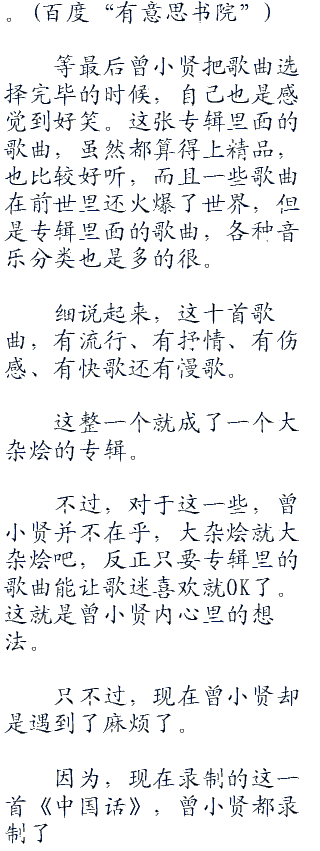 。(百度“有意思书院”)
等最后曾小贤把歌曲选
择完毕的时候，自己也是感
觉到好笑。这张专辑里面的
歌曲，虽然都算得上精品，
也比较好听，而且一些歌曲
在前世里还火爆了世界，但
是专辑里面的歌曲，各种音
乐分类也是多的很。
细说起来，这十首歌
曲，有流行、有抒情、有伤
感、有快歌还有漫歌。
这整一个就成了一个大
杂烩的专辑。
不过，对于这一些，曾
小贤并不在乎，大杂烩就大
杂烩吧，反正只要专辑里的
歌曲能让歌迷喜欢就OK了。
这就是曾小贤内心里的想
法。
只不过，现在曾小贤却
是遇到了麻烦了。
因为，现在录制的这一
首《中国话》，曾小贤都录
制了